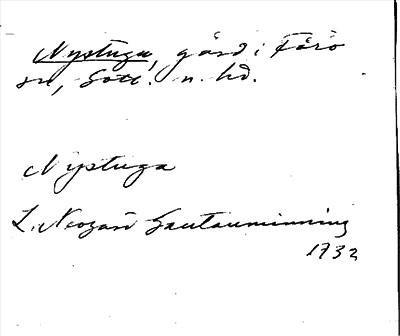 Nystuga, gård i Fårö
sn, Gotl. n. hd.
Nystuga
L. Neogard Gautauminning
1732